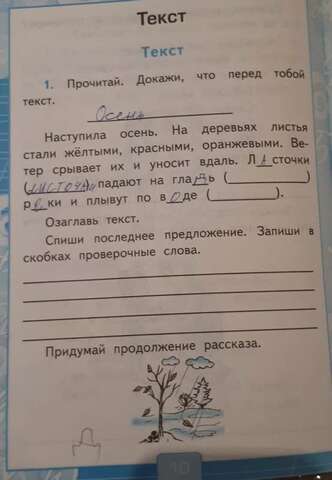 Текст
Текст
1. Прочитай. Докажи, что перед тобой
текст.
Осень
Наступила осень. На деревьях листья
стали жёлтыми, красными, оранжевыми. Ве-
тер срывает их и уносит вдаль. Л и сточки
( ) падают на гла дь ( )
р е ки и плывут по в о де ( ).
Озаглавь текст.
Спиши последнее предложение. Запиши в
скобках проверочные слова.
Придумай продолжение рассказа.
10